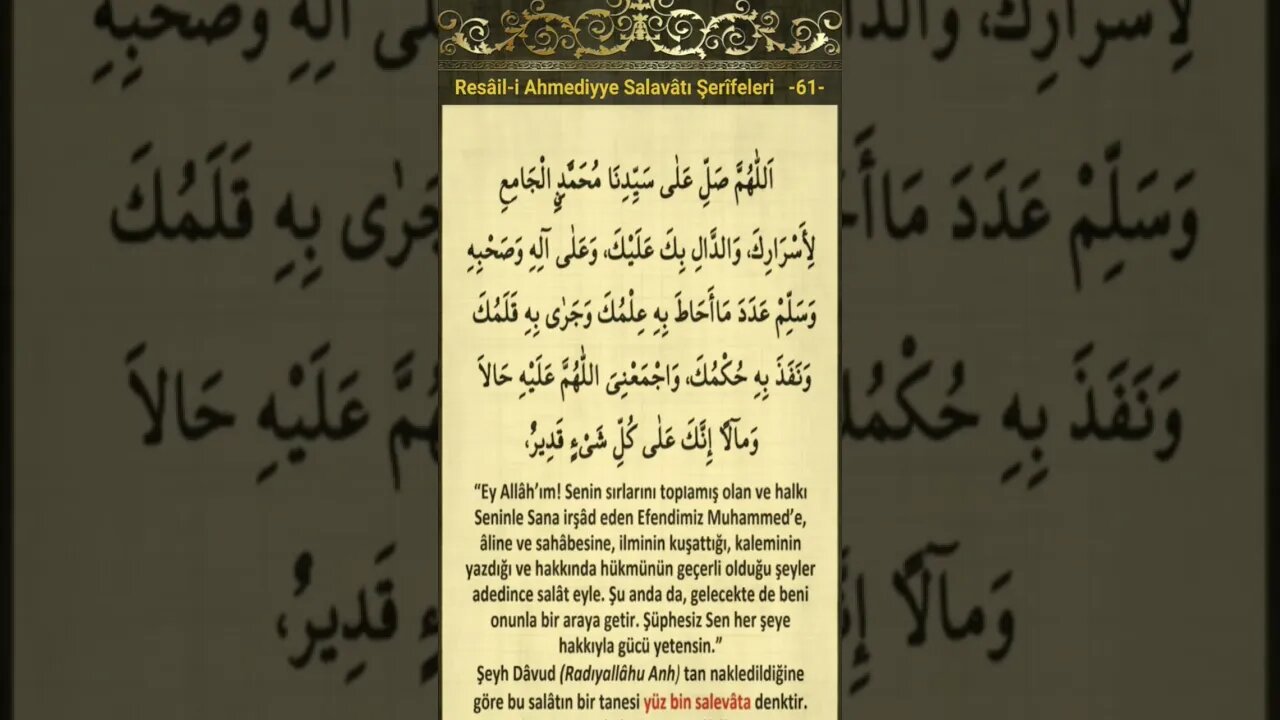 Resâil-i Ahmediyye Salavâtı Şerîfeleri -61-
اَللّٰهُمَّ صَلِّ عَلٰى سَيِّدِنَا مُحَمَّدٍۨ الْجَامِعِ
لِأَسْرَارِكَ، وَالدَّالِ بِكَ عَلَيْكَ، وَعَلٰى آلِهِ وَصَحْبِهِ
وَسَلِّمْ عَدَدَ مَاأَحَاطَ بِهِ عِلْمُكَ وَجَرٰى بِهِ قَلَمُكَ
وَنَفَذَ بِهِ حُكْمُكَ، وَاجْمَعْنِىَ اللّٰهُمَّ عَلَيْهِ حَالاَ
وَمآلًا إِنَّكَ عَلٰى كُلِّ شَىْءٍ قَدِيرٌ،
“Ey Allâh’ım! Senin sırlarını toplamış olan ve halkı
Seninle Sana irşâd eden Efendimiz Muhammed’e,
âline ve sahâbesine, ilminin kuşattığı, kaleminin
yazdığı ve hakkında hükmünün geçerli olduğu şeyler
adedince salât eyle. Şu anda da, gelecekte de beni
onunla bir araya getir. Şüphesiz Sen her şeye
hakkıyla gücü yetensin.”
Şeyh Dâvud (Radıyallâhu Anh) tan nakledildiğine
göre bu salâtın bir tanesi yüz bin salevâta denktir.